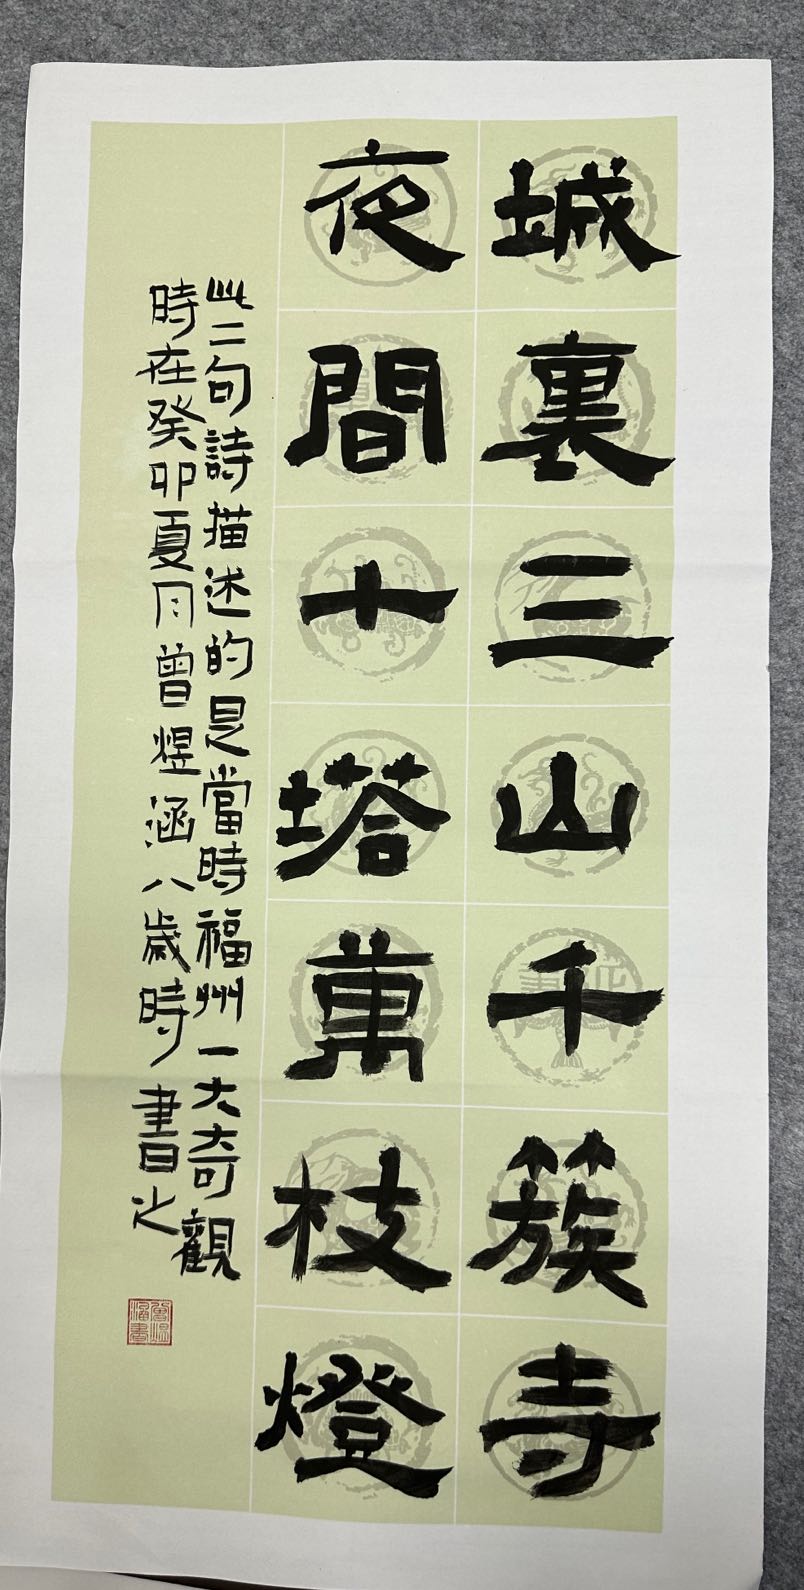 城裏三山千簇寺
夜間十塔萬枝燈
此二句詩描述的是當時福州一大奇觀
時在癸卯夏月曾煜涵八歲時書之
曾煜涵書